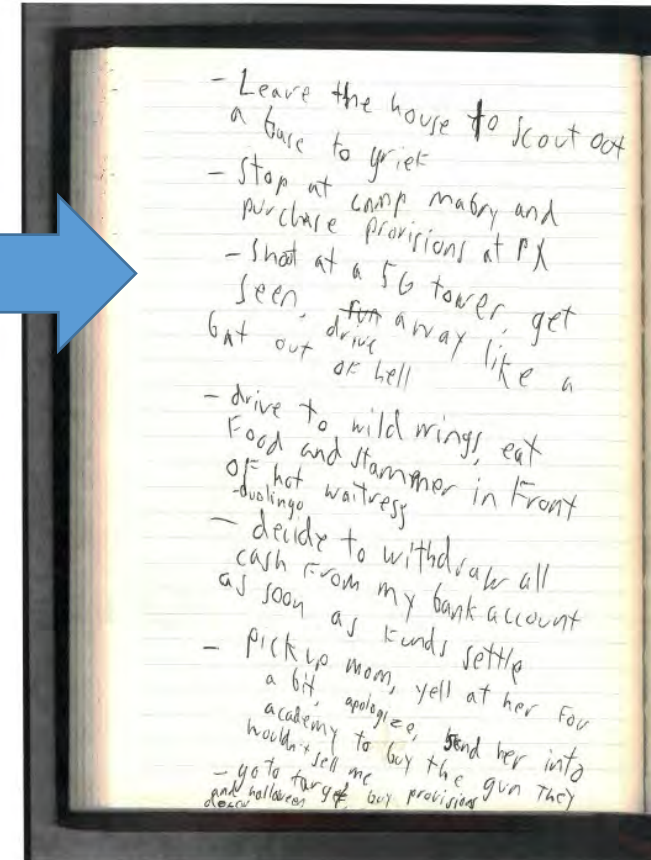 - Leave the house to scout out
a base to grief
- Stop at camp mabry and
purchase provisions at PX
- Shoot at a 5G tower, get
seen, drive away like a
bat out of hell
- drive to wild wings, eat
Food and stammer in Front
OF hot waitress
-duolingo
- decide to withdraw all
cash From my bank account
as soon as Funds settle
- Pick up mom, yell at her For
a bit, apologize, send her into
academy to buy the gun They
wouldn't sell me
- go to target, buy provisions
and halloween decor